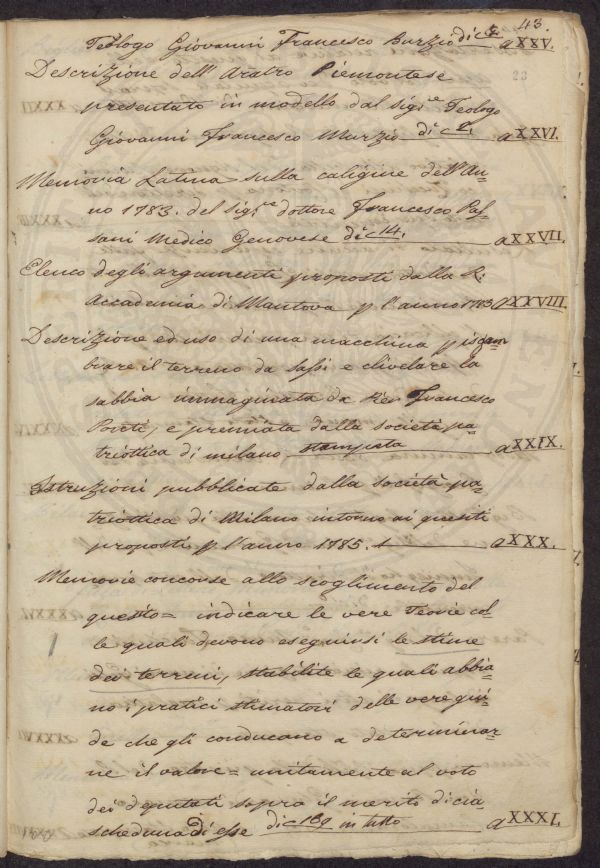 43.
Teologo Giovanni Francesco Burzio di c 5. aXXV.
28
Descrizione dell'Aratro Piemontese
presentato in modello dal sig.re Teologo
Giovanni Francesco Murzio di c aXXVI.
Memoria Latina sulla caligine dell'An-
no 1783. del sig.re dottore Francesco Pas-
sani Medico Genovese di c 14. aXXVII.
Elenco degli argomenti proposti dalla R.
Accademia di Mantova p l'anno 1783 aXXVIII.
Descrizione ed uso di una macchina p isgom
brare il terreno da sassi e clivelare la
sabbia immaginata da Francesco
Porti, e premiata dalla società pa-
triottica di milano stampata aXXIX.
Istruzioni pubblicate dalla società pa-
triottica di Milano intorno ai quesiti
proposti p l'anno 1785. aXXX.
Memorie concorse allo scoglimento del
quesito = indicare le vere Teorie col-
le quali devono eseguirsi le stime
dei terreni, stabilite le quali abbia-
no i pratici stimatori delle vere gui-
de che gli conducano a determinar-
ne il valore = unitamente al voto
dei deputati sopra il merito di cia-
scheduna di esse di c 189 in tutto aXXXI.